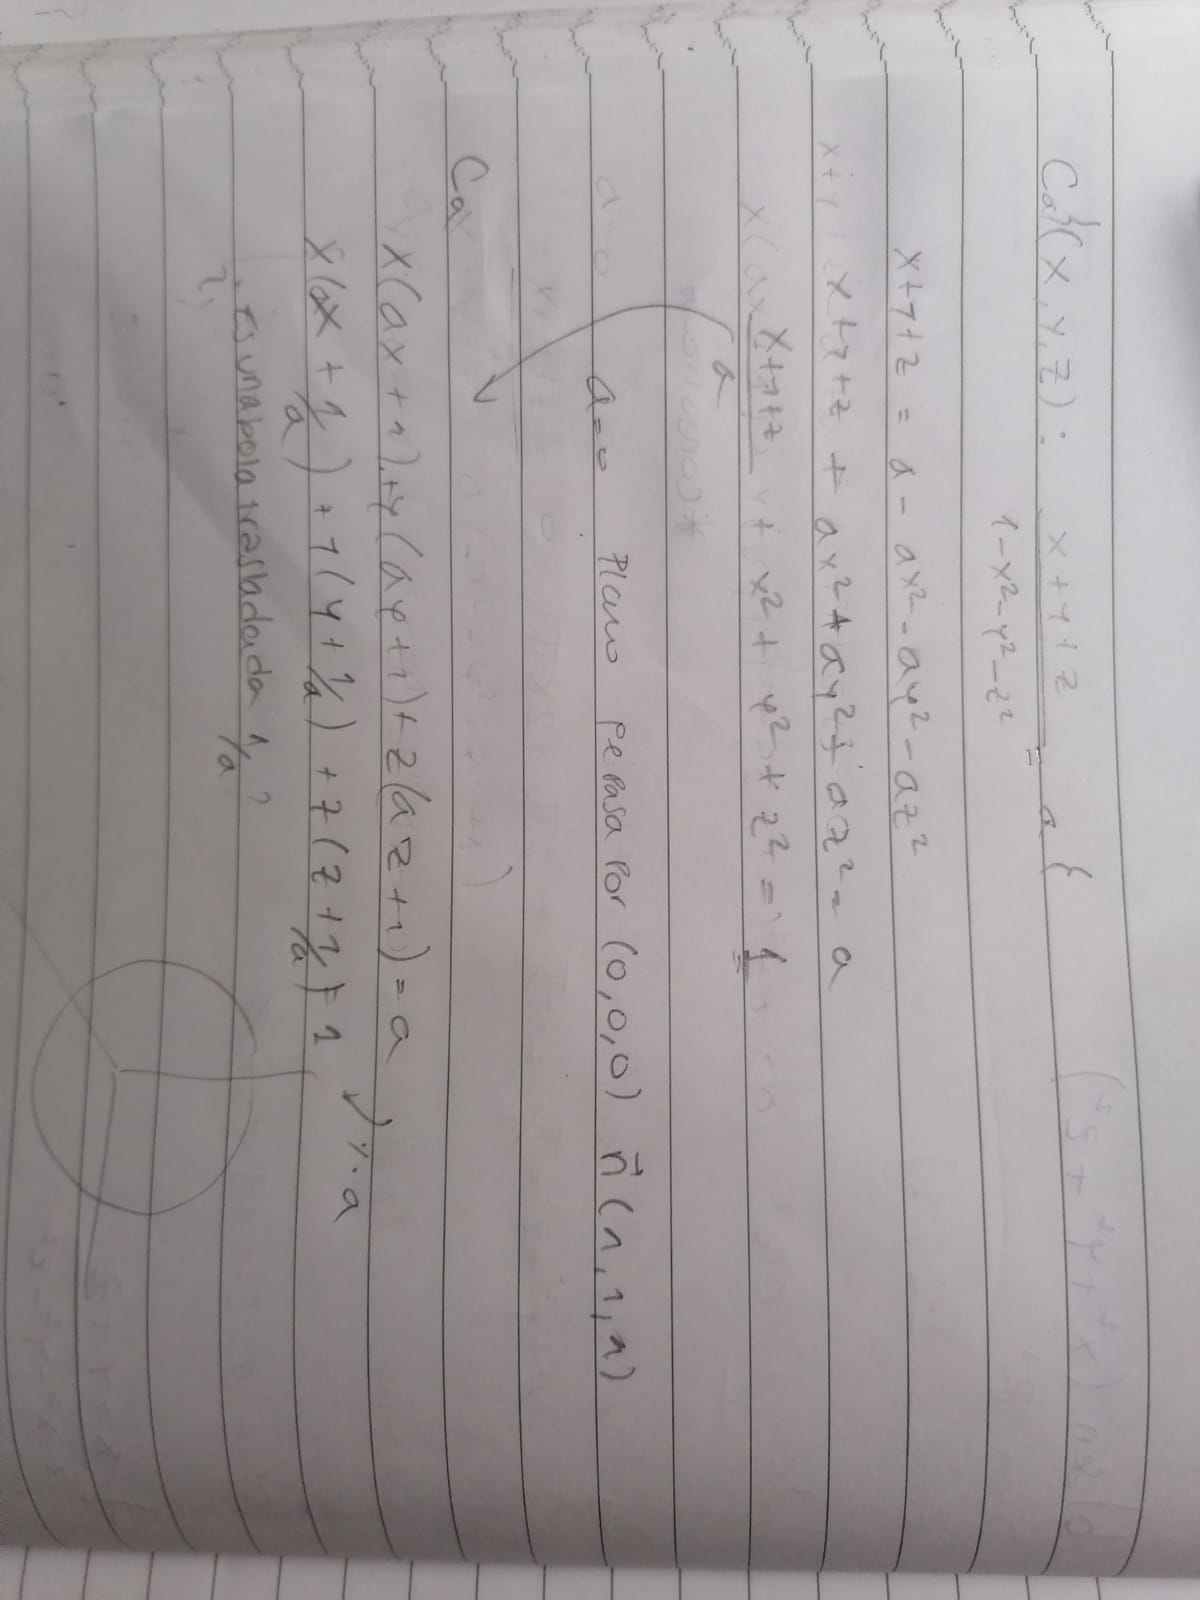 Ca }(x, y, z) : x+y+z / 1-x²-y²-z² = a {
x+y+z = a - ax² - ay² - az²
x+y+z + ax² + ay² + az² = a
x+y+z / a + x² + y² + z² = 1
a=0 Plano pasa por (0,0,0) n⃗ (1,1,1)
Ca
x(ax+1)+y(ay+1)+z(az+1)=a
x(x + 1/a) + y(y + 1/a) + z(z + 1/a) = 1
: a
¿ Es una bola trasladada 1/a ?